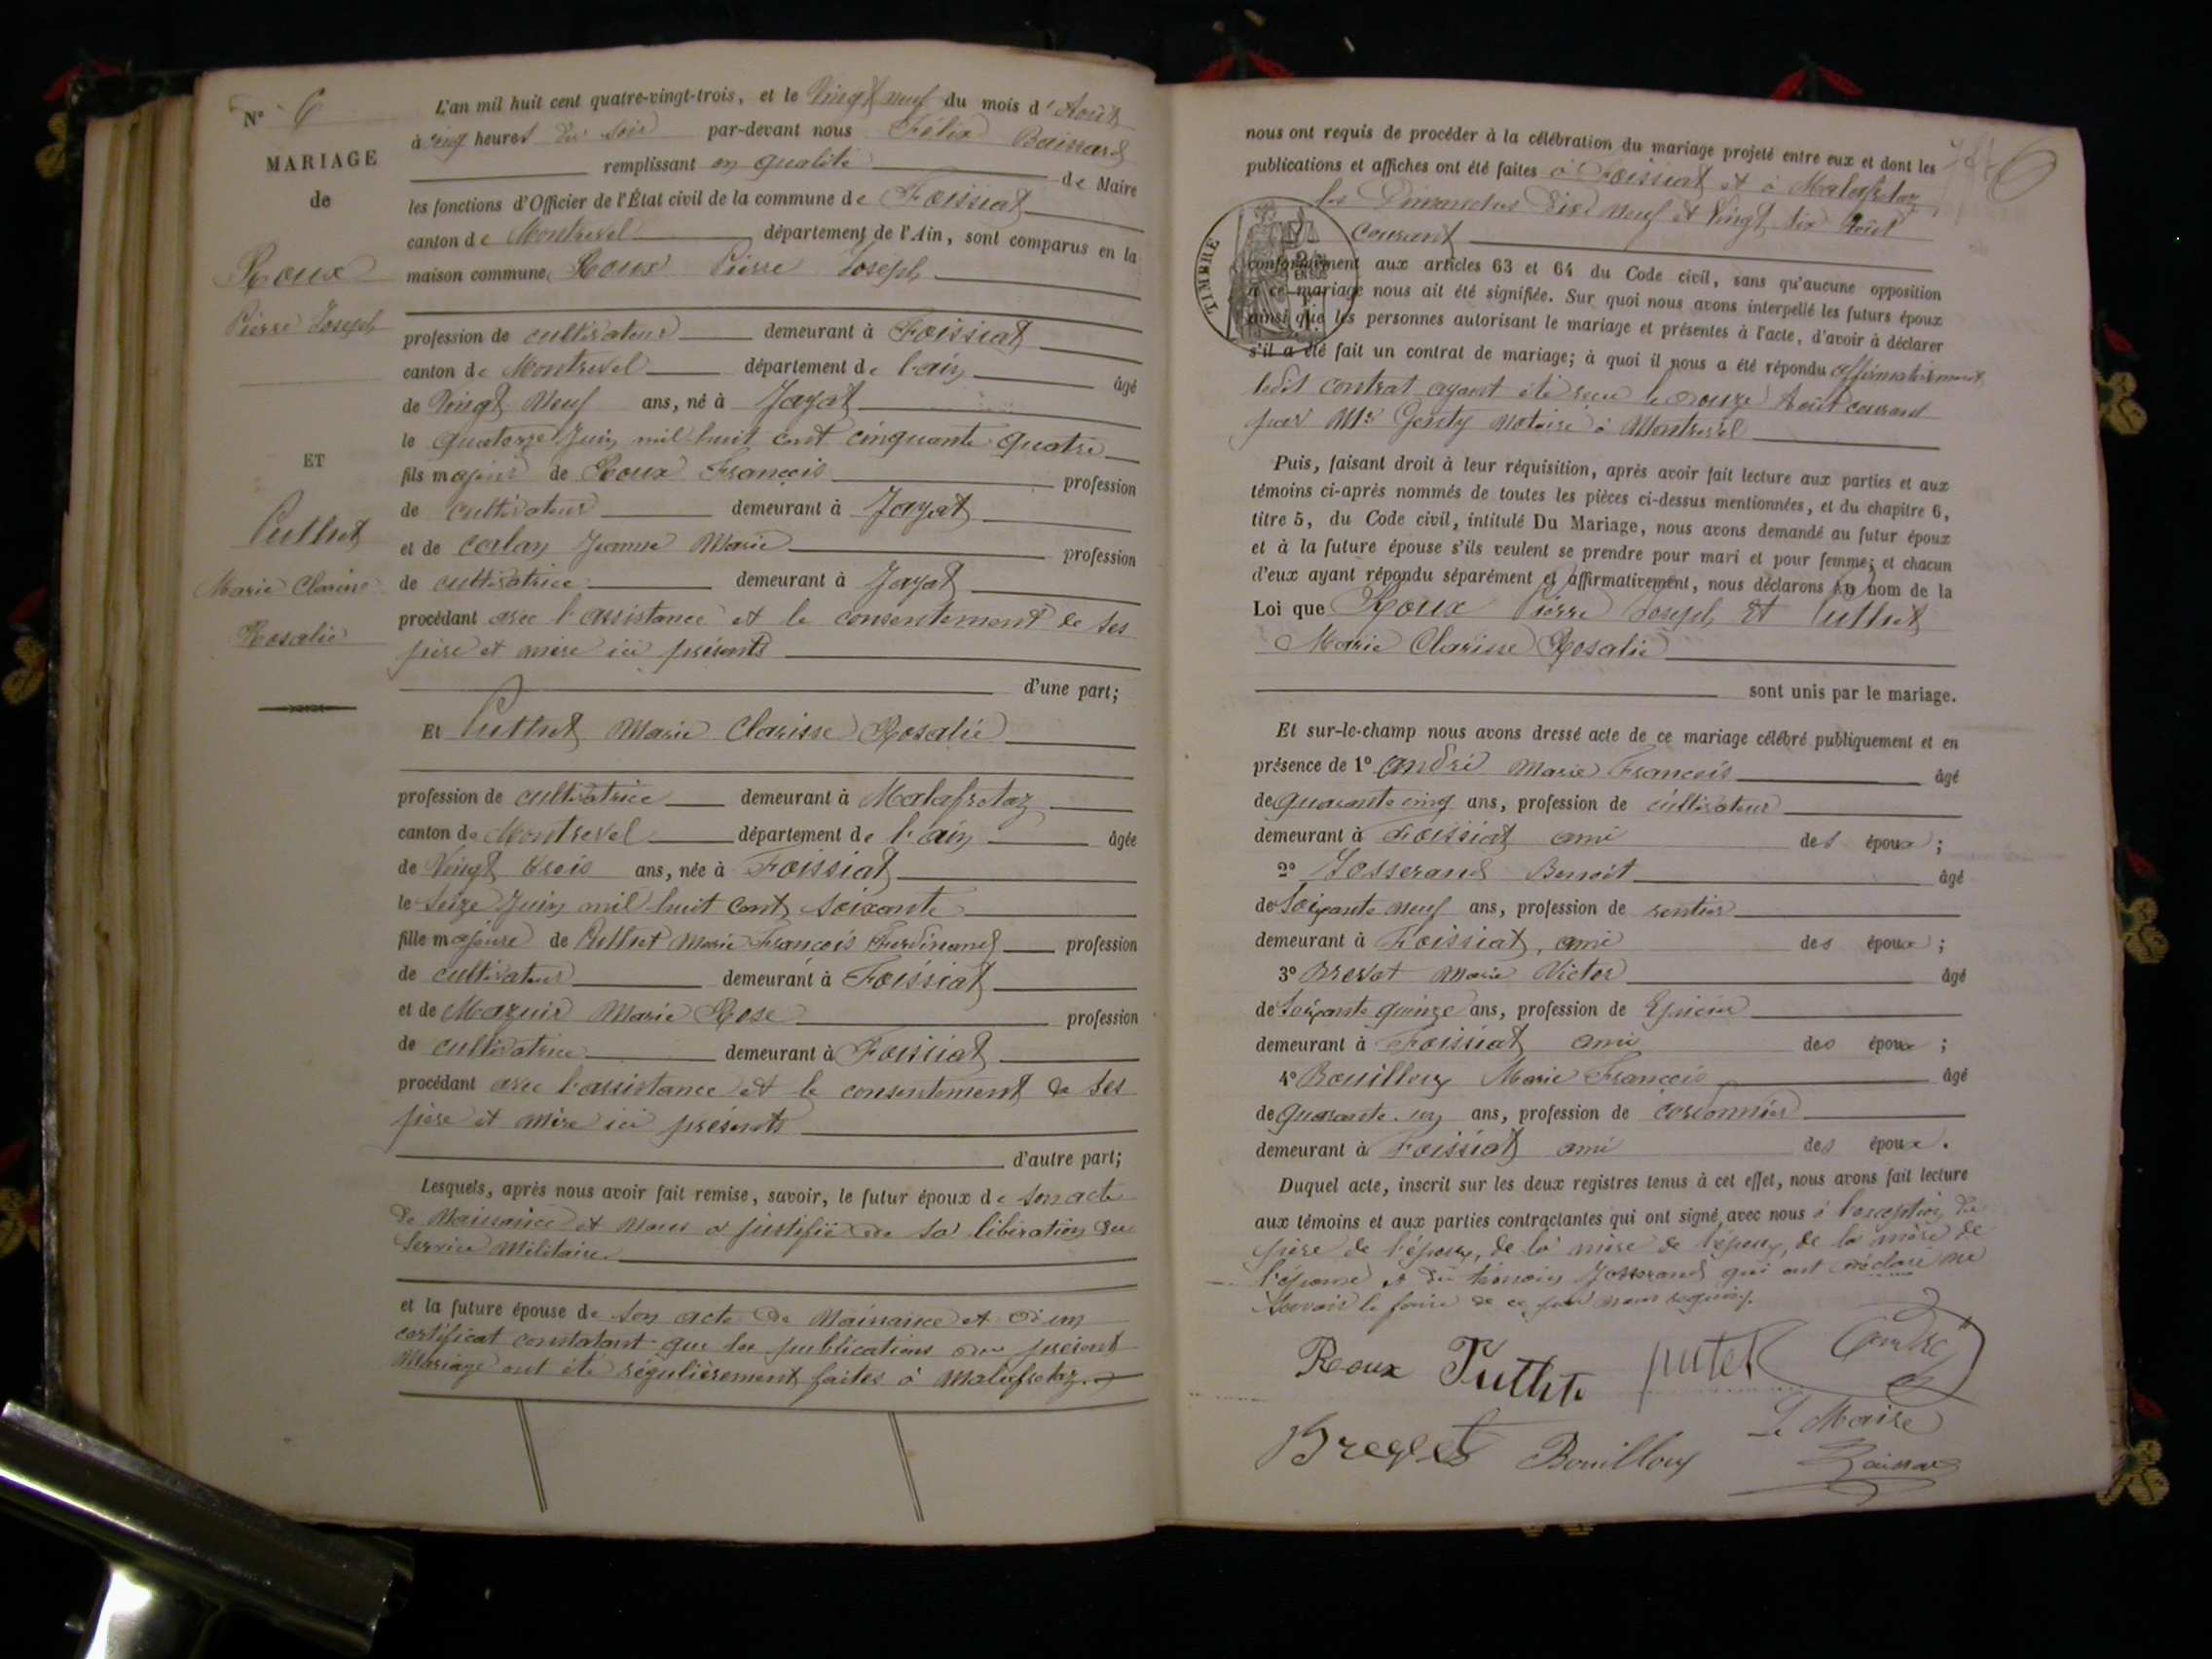 N° 6
MARIAGE
de
Roux
Pierre Joseph
ET
Puthet
Marie Clarisse
Rosalie
L'an mil huit cent quatre-vingt-trois, et le Vingt neuf du mois d'Août
à cinq heures du soir par-devant nous Félix Baissard
remplissant en qualité de Maire
les fonctions d'Officier de l'État civil de la commune de Foissiat
canton de Montrevel département de l'Ain, sont comparus en la
maison commune, Roux Pierre Joseph
profession de cultivateur demeurant à Foissiat
canton de Montrevel département de l'ain âgé
de Vingt Neuf ans, né à Jayat
le quatorze Juin mil huit cent cinquante quatre
fils majeur de Roux François profession
de cultivateur demeurant à Jayat
et de Jeanne Marie profession
de cultivatrice demeurant à Jayat
procédant avec l'assistance et le consentement de ses
père et mère ici présents
d'une part;
Et Puthet Marie Clarisse Rosalie
profession de cultivatrice demeurant à Malafretaz
canton de Montrevel département de l'ain âgée
de Vingt trois ans, née à Foissiat
le Seize Juin mil huit cent soixante
fille majeure de Puthet Marie François Ferdinand profession
de cultivateur demeurant à Foissiat
et de Mazuir Marie Rose profession
de cultivatrice demeurant à Foissiat
procédant avec l'assistance et le consentement de ses
père et mère ici présents
d'autre part;
Lesquels, après nous avoir fait remise, savoir, le futur époux de son acte
de Naissance et nous a justifié de sa libération du
Service Militaire.
et la future épouse de son acte de Naissance et d'un
certificat constatant que les publications du présent
Mariage ont été régulièrement faites à Malafretaz.
6
nous ont requis de procéder à la célébration du mariage projeté entre eux et dont les
publications et affiches ont été faites à Foissiat et à Malafretaz
les Dimanches Dix neuf et Vingt six Août
courant
TIMBRE
conformément aux articles 63 et 64 du Code civil, sans qu'aucune opposition
à ce mariage nous ait été signifiée. Sur quoi nous avons interpellé les futurs époux
ainsi que les personnes autorisant le mariage et présentes à l'acte, d'avoir à déclarer
s'il a été fait un contrat de mariage; à quoi il nous a été répondu affirmativement,
ledit contrat ayant été reçu le Août courant
par Me Genty Notaire à Montrevel
Puis, faisant droit à leur réquisition, après avoir fait lecture aux parties et aux
témoins ci-après nommés de toutes les pièces ci-dessus mentionnées, et du chapitre 6,
titre 5, du Code civil, intitulé Du Mariage, nous avons demandé au futur époux
et à la future épouse s'ils veulent se prendre pour mari et pour femme; et chacun
d'eux ayant répondu séparément et affirmativement, nous déclarons au nom de la
Loi que Roux Pierre Joseph Et Puthet
Marie Clarisse Rosalie
sont unis par le mariage.
Et sur-le-champ nous avons dressé acte de ce mariage célébré publiquement et en
présence de 1° André Marie François âgé
de quarante cinq ans, profession de cultivateur
demeurant à Foissiat ami des époux;
2° Josserand Benoît âgé
de Soixante neuf ans, profession de rentier
demeurant à Foissiat, ami des époux;
3° Brevet Marie Victor âgé
de Soixante quinze ans, profession de Epicier
demeurant à Foissiat ami des époux;
4° Bouilloux Marie François âgé
de quarante un ans, profession de cordonnier
demeurant à Foissiat ami des époux.
Duquel acte, inscrit sur les deux registres tenus à cet effet, nous avons fait lecture
aux témoins et aux parties contractantes qui ont signé avec nous à l'exception du
père de l'époux, de la mère de l'époux, de la mère de
l'épouse et du témoin Josserand qui ont déclaré ne
savoir le faire de ce par nous requis.
Roux Puthet putet André
Brevet Bouilloux
Le Maire
Baissard